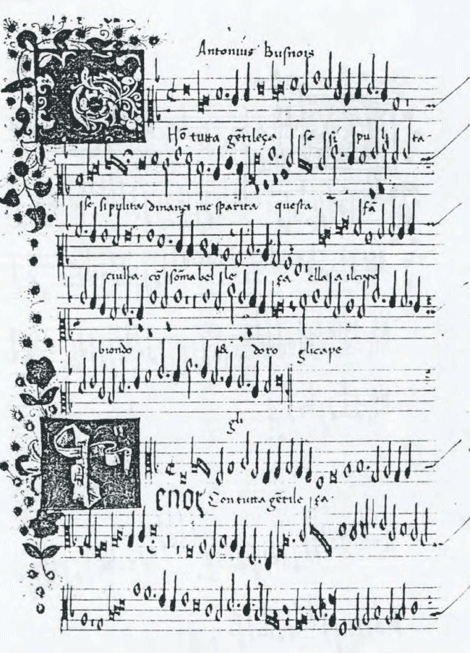 Antonius Busnois
Hō tutta gētileça se si pu li ta
se si pulita dinanzi me sparita questa fā
ciulla cō ssoma bel le ça ella a
biondo & doro glicape
gli
enor Con tutta gētile ça